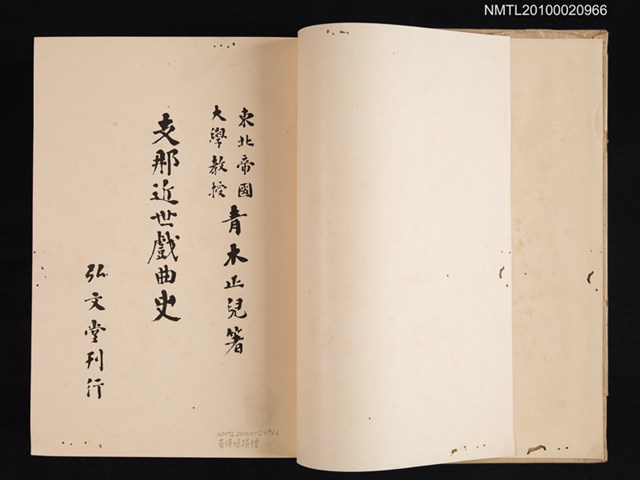 NMTL20100020966
東北帝國
大學教授
青木正兒著
支那近世戲曲史
弘文堂刊行
NMTL20100020966